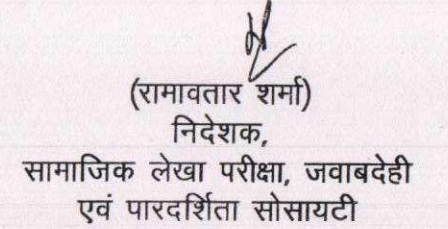 (रामावतार शर्मा)
निदेशक,
सामाजिक लेखा परीक्षा, जवाबदेही
एवं पारदर्शिता सोसायटी